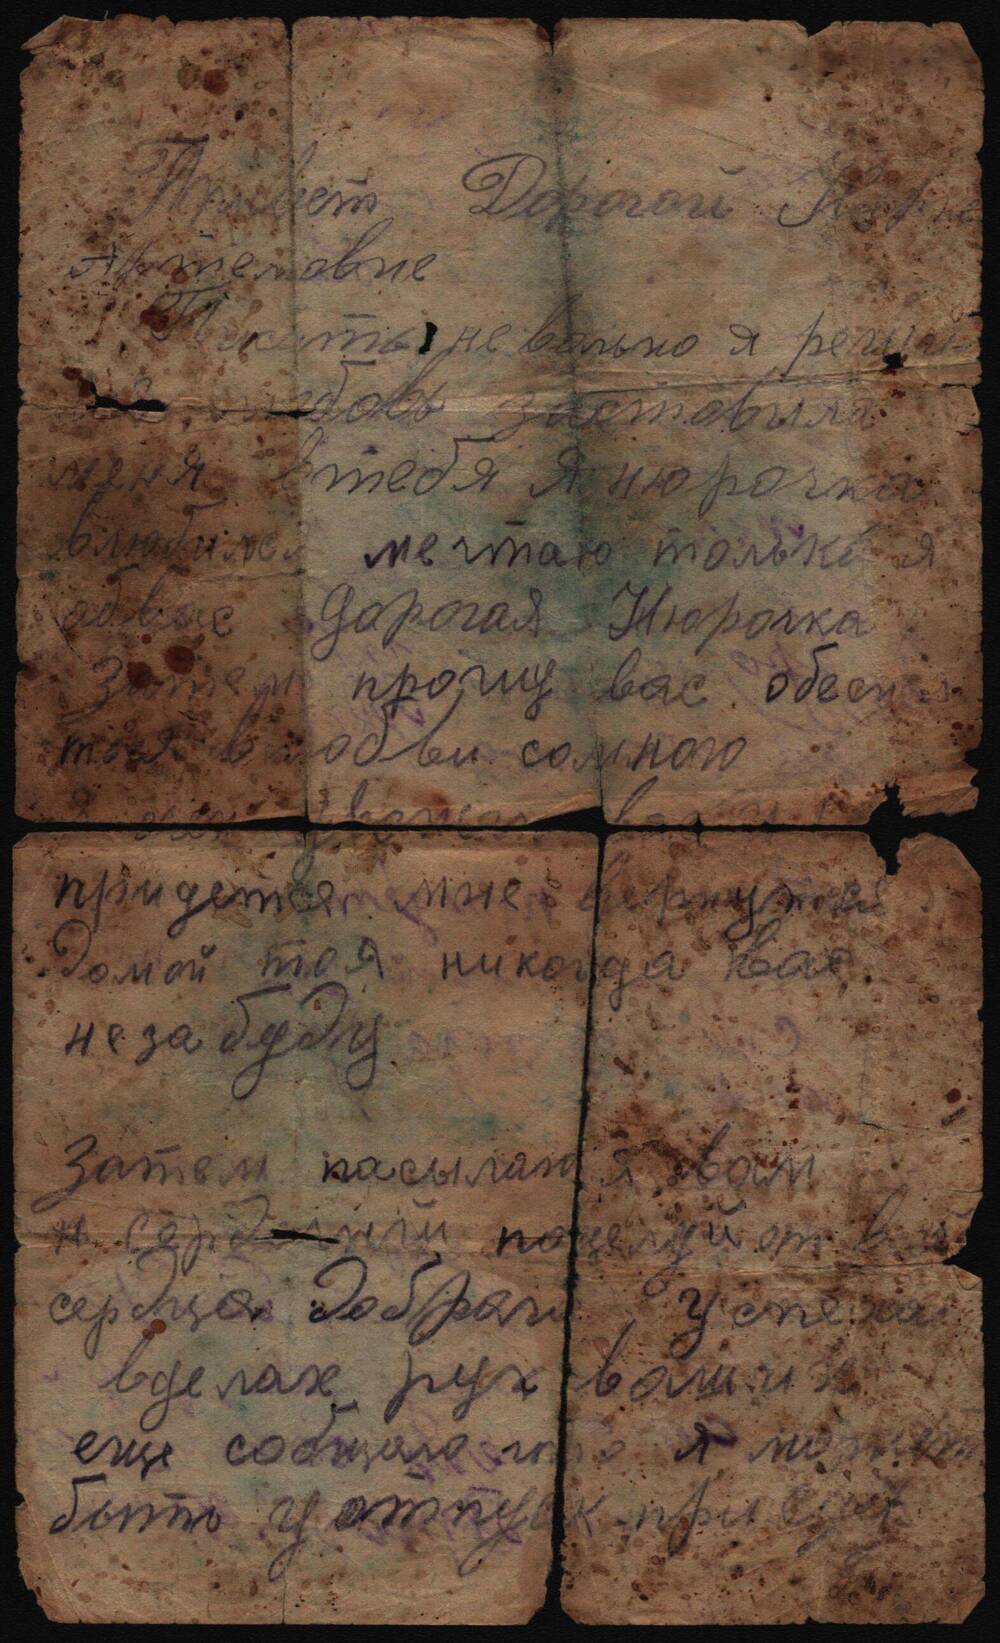 Привет Дорогой
Артемовне
Писать не вольно я
любовь заставила
меня втебя я нюрочка
влюбился мечтаю только я
обвас Дорогая Нюрочка
Затем прошу вас
тся в любви сомною
я
придется мне вернутся
домой то я никогда вас
незабуду
Затем пасылаю я вам
поцелуй от
сердца добраго успеха
вделах рук ваших
еще сообщаю что я может
быть у отпуск приеду